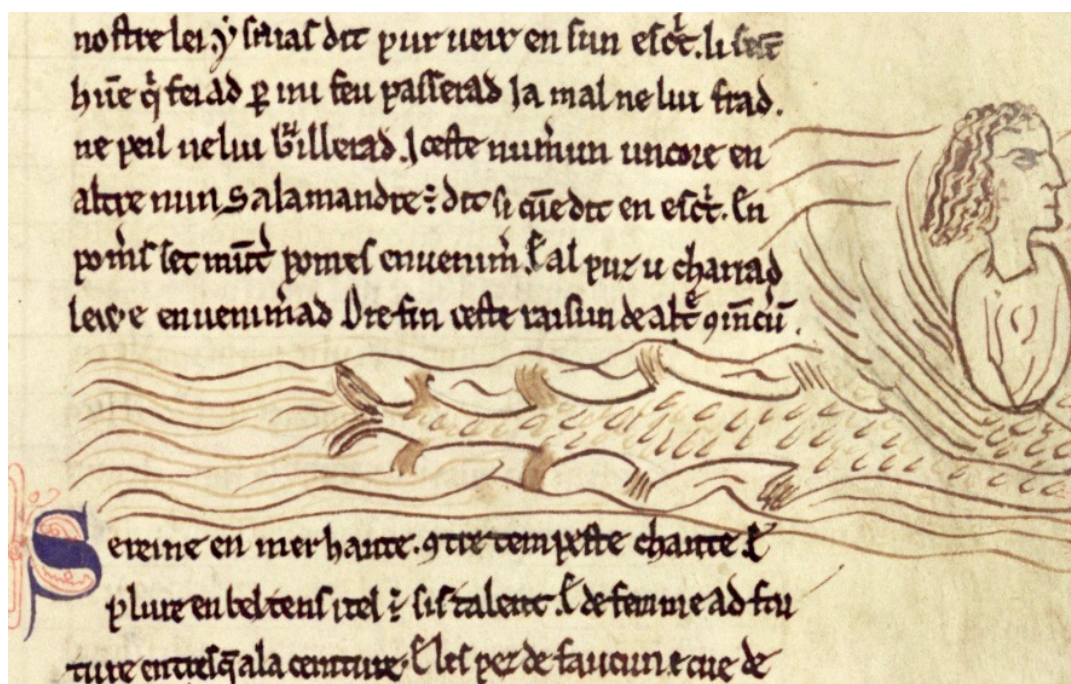 nostre lei. ysaias dit pur ueir en sun escͥt. li seͨt
hūe qͥ fei ad ꝑ mi feu passerad Ja mal ne lui frad.
ne peil ne lui bͣillerad. Iceste numūn uncore en
altre nun Salamandre ÷ dit si cūe dit en escͥt. En
pomͥs set mūt pomes enuenim̄ E al puz u charrad
lewe enuenimad Ore fin ceste raisun de altͤ ꝯm̄cū.
Sereine en mer hante. ꝯtre tempeste chante. E
plure en bel tens itel ÷ sis talent. E de femme ad fai
ture entresqͣ a la centure. E les pez de faucun e cue de